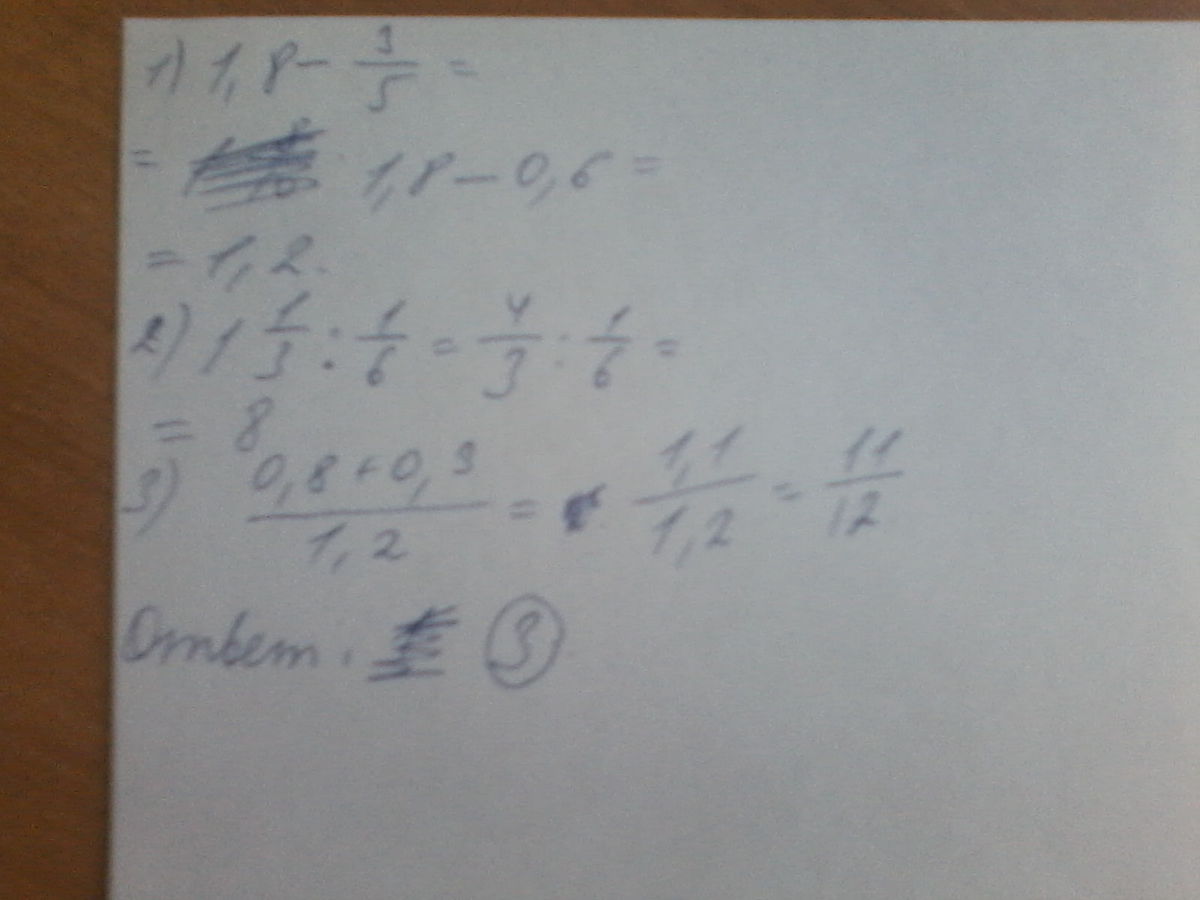 1) 1,8 - 3/5 =
= 1,8 - 0,6 =
= 1,2.
2) 1 1/3 : 1/6 = 4/3 : 1/6 =
= 8
3) (0,8 + 0,3)/1,2 = 1,1/1,2 = 11/12
Ответ: 3